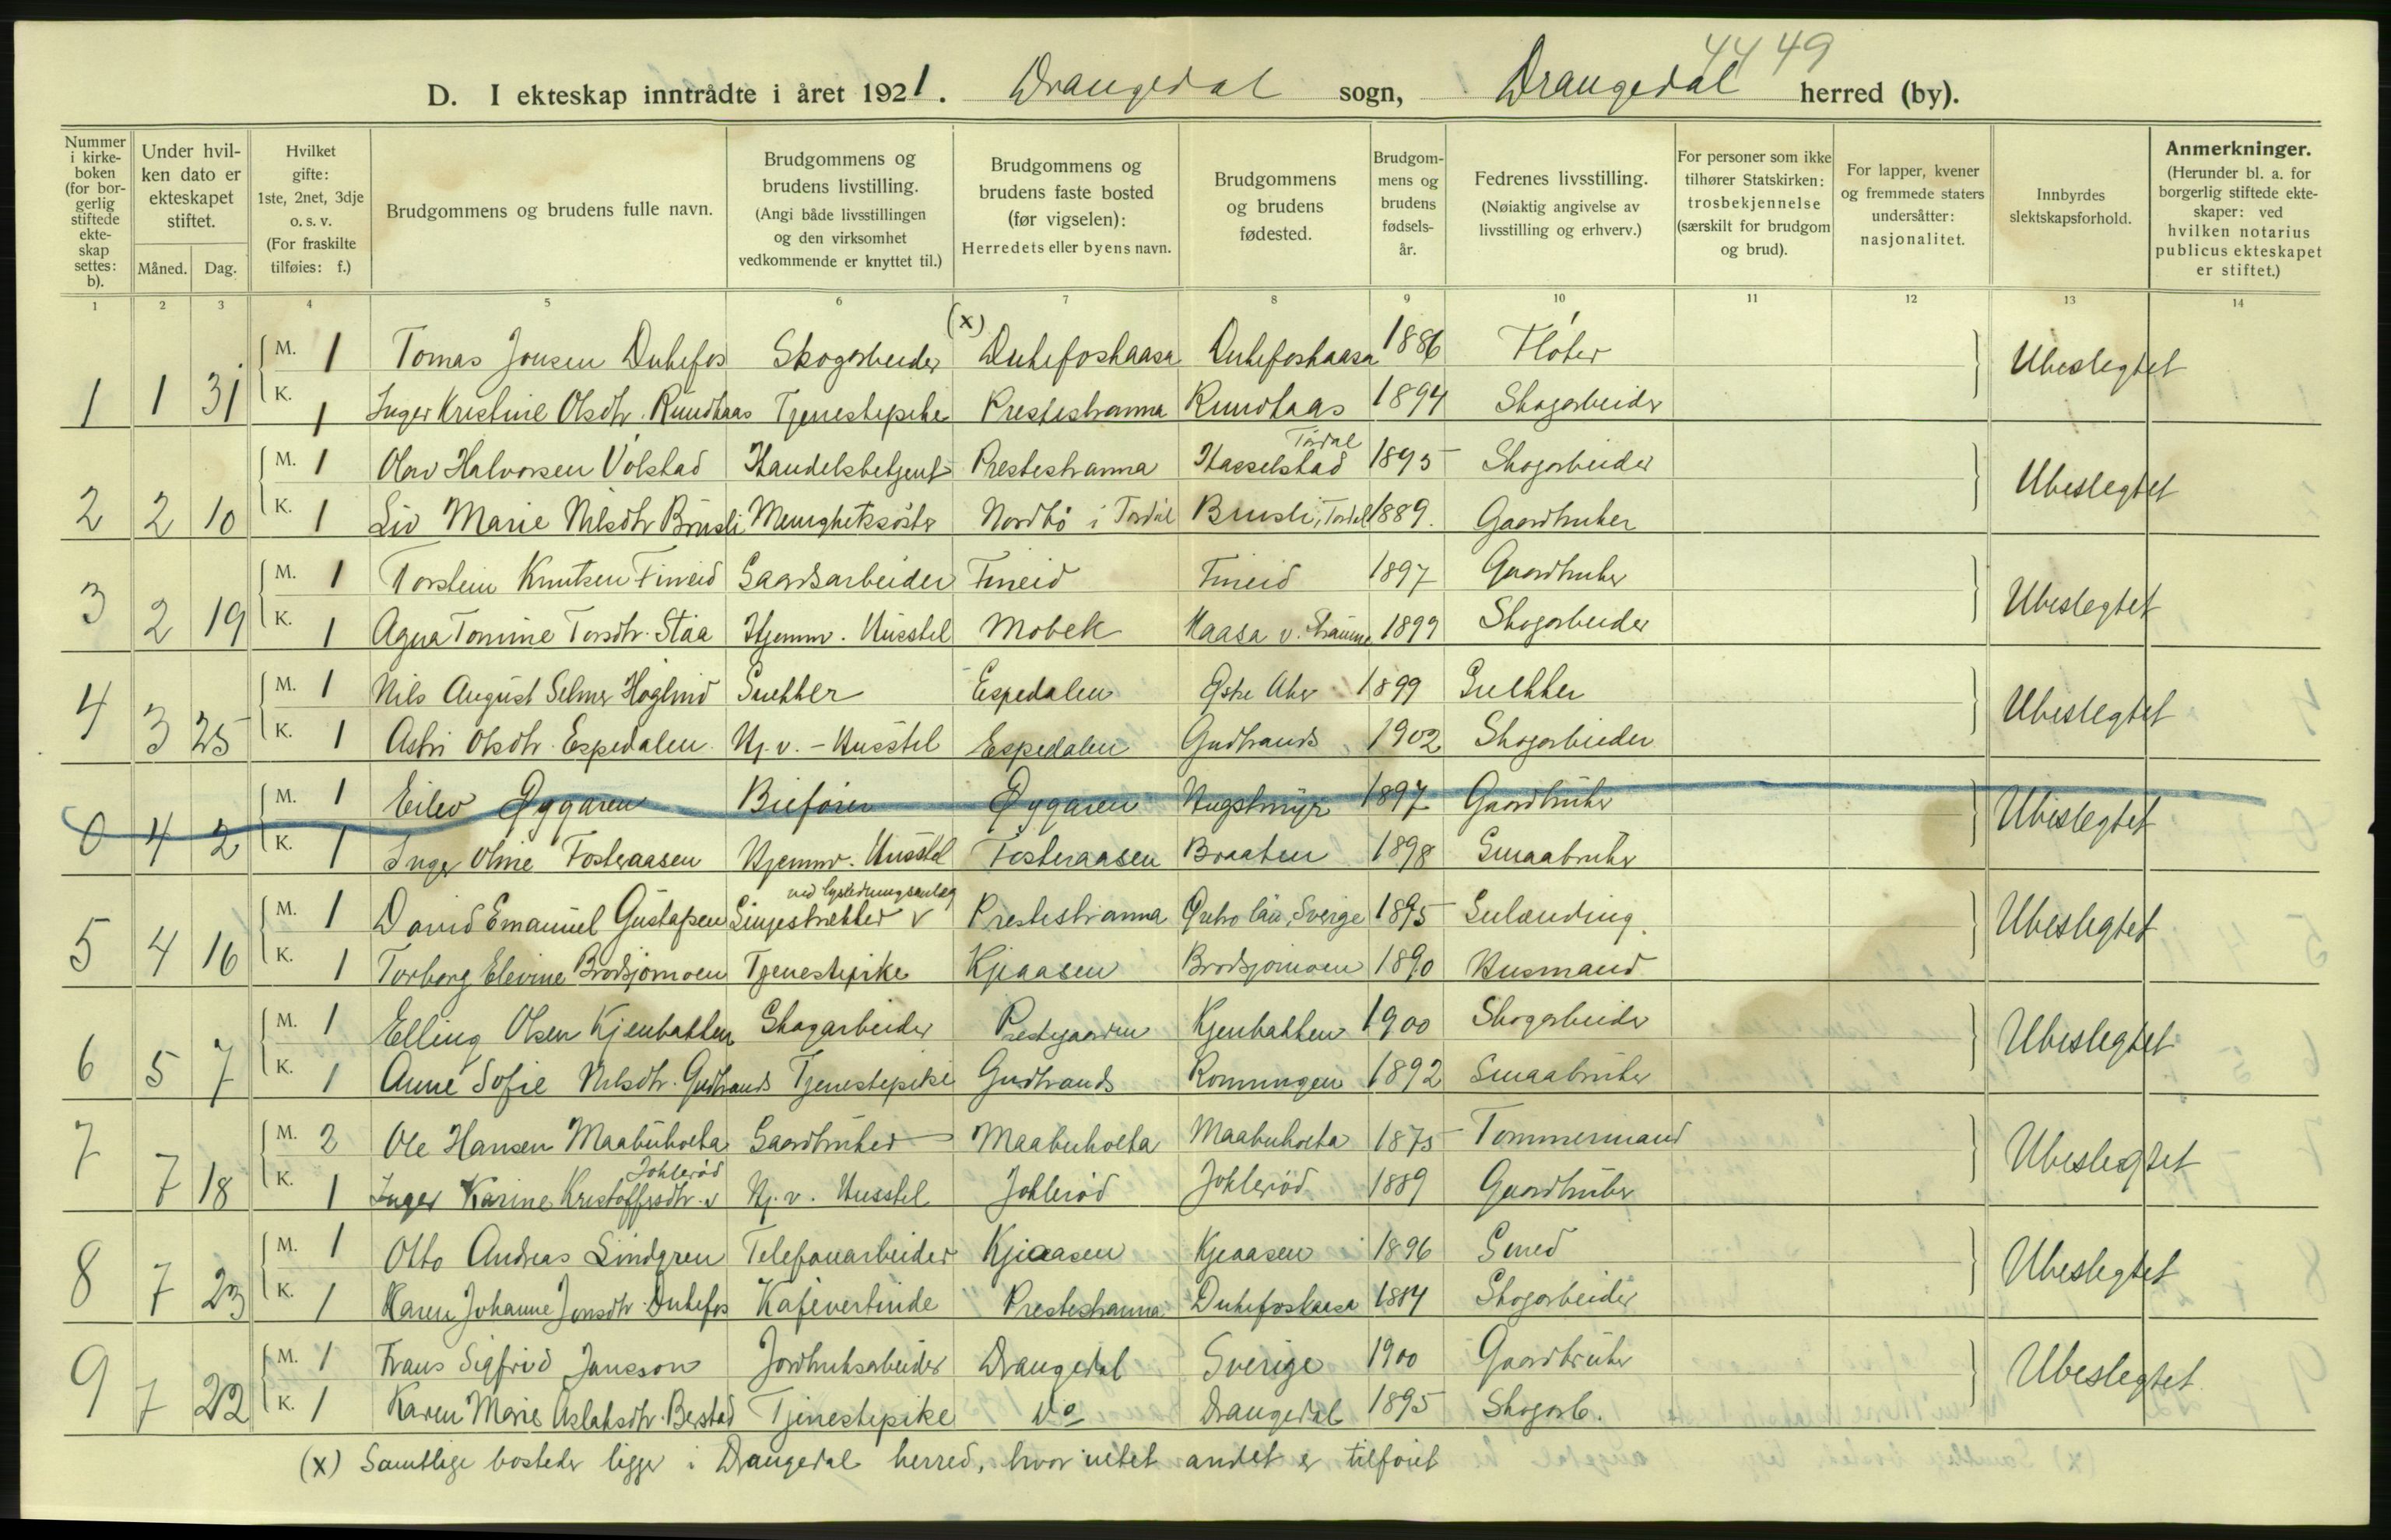 4449
D. I ekteskap inntrådte i året 1921. Drangedal sogn, Drangedal herred (by).
Nummer i kirke-boken (for bor-gerlig stiftede ekte-skap settes: b).
Under hvil-ken dato er ekteskapet stiftet.
Måned. Dag.
Hvilket gifte: 1ste, 2net, 3dje o. s. v. (For fraskilte tilføies: f.)
Brudgommens og brudens fulle navn.
Brudgommens og brudens livstilling. (Angi både livsstillingen og den virksomhet vedkommende er knyttet til.)
Brudgommens og brudens faste bosted (før vigselen): Herredets eller byens navn.
Brudgommens og brudens fødested.
Brudgom-mens og brudens fødsels-år.
Fedrenes livsstilling. (Nøiaktig angivelse av livsstilling og erhverv.)
For personer som ikke tilhører Statskirken: trosbekjennelse (særskilt for brudgom og brud).
For lapper, kvener og fremmede staters undersåtter: nasjonalitet.
Innbyrdes slektskapsforhold.
Anmerkninger. (Herunder bl. a. for borgerlig stiftede ekte-skaper: ved hvilken notarius publicus ekteskapet er stiftet.)
1 2 3 4 5 6 7 8 9 10 11 12 13 14
(x)
M. 1 Tomas Jonsen Dukefos Skogarbeider Dukefoskaasa Dukefoskaasa 1886 Fløter Ubeslegtet
1 1 31 K. 1 Inger Kristine Olsdtr. Rundkaas Tjenestepike Prestestranna Rundkaas 1894 Skogarbeider
Tørdal
M. 1 Olav Halvorsen Volstad Handelsbetjent Prestestranna Hasselstad 1895 Skogarbeider Ubeslegtet
2 2 10 K. 1 Liv Marie Nilsdtr Brusli Menighetssøster Nordbø i Tørdal Brusli, Tørdal 1889. Gaardbruker
M. 1 Torstein Knutsen Fineid Gaardsarbeider Fineid Fineid 1897 Gaardbruker Ubeslegtet
3 2 19 K. 1 Agna Tomine Torsdtr. Staa Hjemmv. Husstel Mobek Haasa v. 1899 Skogarbeider
M. 1 Nils August Selmer Høglind Snekker Espedalen Østre Aker 1899 Snekker Ubeslegtet
4 3 25 K. 1 Astri Olsdtr. Espedalen Hj. v. - Husstel Espedalen Gudbrands 1902 Skogarbeider
M. 1 Eilev Øygaren Bilfører Øygaren Hugstmyr 1897 Gaardbruker Ubeslegtet
0 4 2 K. 1 Inger Oline Fosteraasen Hjemmv. Husstel Fosteraasen Braaten 1898 Smaabruker
ved lysledningsanlæg
M. 1 David Emanuel Gustafsen Linjestrekker v Prestestranna Sverige 1895 Ubeslegtet
5 4 16 K. 1 Torborg Elevine Brødsjømoen Tjenestepike Kjeaasen Brødsjømoen 1890 Husmand
M. 1 Elling Olsen Kjenbakken Skogarbeider Prestegaarden Kjenbakken 1900 Skogarbeider Ubeslegtet
6 5 7 K. 1 Anne Sofie Nilsdtr. Gudbrands Tjenestepike Gudbrands Rønningen 1892 Smaabruker
M. 2 Ole Hansen Maabuholta Gaardbruker Maabuholta Maabuholta 1875 Tømmermand Ubeslegtet
Joklerød
7 7 18 K. 1 Inger Karine Kristoffersdtr. v Hj. v. Husstel Joklerød Joklerød 1889 Gaardbruker
M. 1 Otto Andreas Lindgren Telefonarbeider Kjeaasen Kjeaasen 1896 Smed Ubeslegtet
8 7 23 K. 1 Karen Johanne Jonsdtr Dukefos Kafévertinde Prestestranna Dukefoskaasa 1884 Skogarbeider
M. 1 Frans Sigfrid Jansson Jordbruksarbeider Drangedal Sverige 1900 Gaardbruker Ubeslegtet
9 7 22 K. 1 Karen Marie Aslaksdtr. Berstad Tjenestepike Do Drangedal 1895 Skogarb.
(x) Samtlige bosteder ligger i Drangedal herred, hvor intet andet er tilføiet